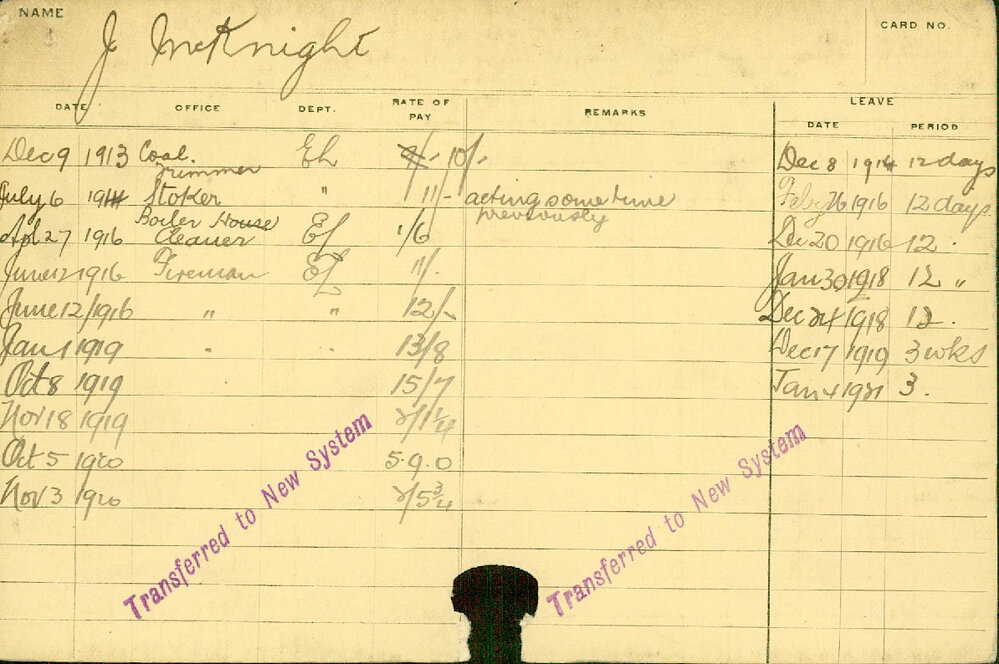 NAME
J McKnight
CARD NO.
DATE OFFICE DEPT. RATE OF PAY REMARKS LEAVE
DATE PERIOD
Dec 9 1913 Coal Trimmer EL 9/- 10/- Dec 8 1914 12 days
July 6 1914 Stoker " 11/- acting some time previously Feby 26 1916 12 days
Apl 27 1916 Boiler House Cleaner EL 1/6 Dec 20 1916 12 .
June 12 1916 Fireman EL 11/. Jan 30 1918 12 "
June 12/1916 " " 12/- Dec 24 1918 12 .
Jan 1 1919 " . 13/8 Dec 17 1919 3 wks
Oct 8 1919 15/7 Jan 4 1921 3 .
Nov 18 1919 2/1¼
Oct 5 1920 5.9.0
Nov 3 1920 2/5¾
Transferred to New System
Transferred to New System